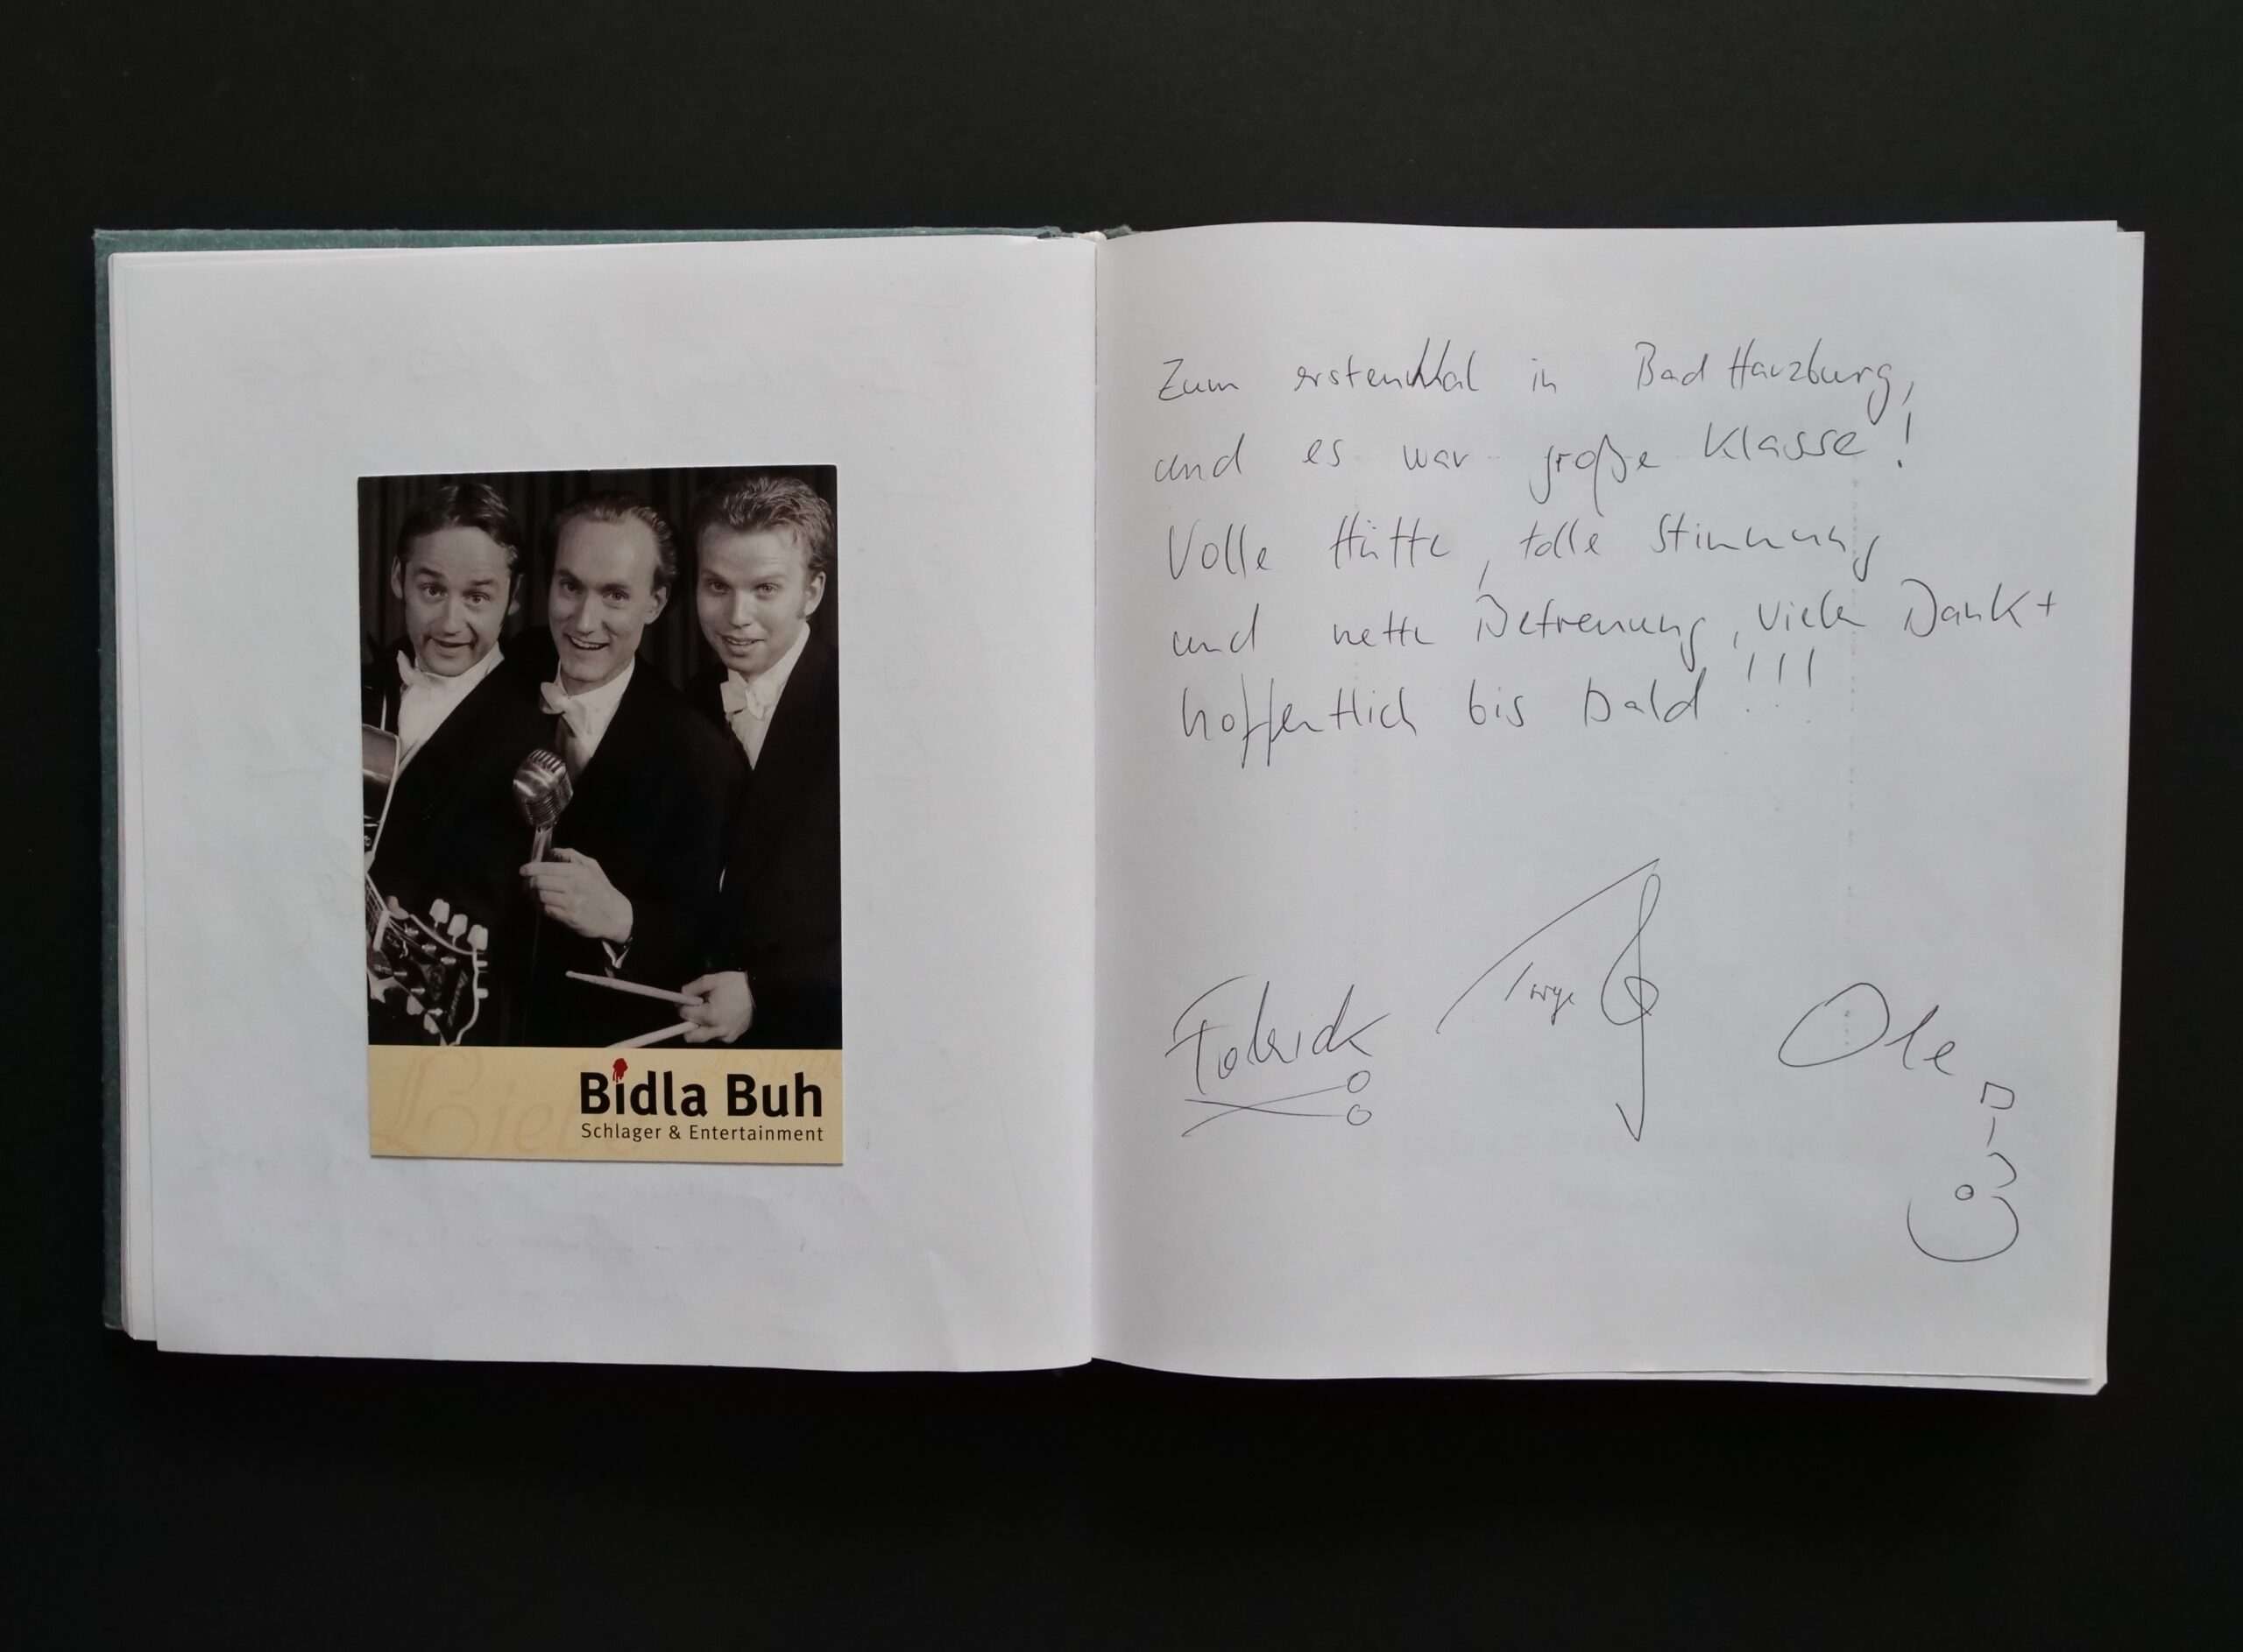 Bidla Buh
Schlager & Entertainment
Zum ersten Mal in Bad Harzburg,
und es war große Klasse!
Volle Hütte, tolle Stimmung
und nette Betreuung, vielen Dank +
hoffentlich bis bald !!!
Torge
Ole